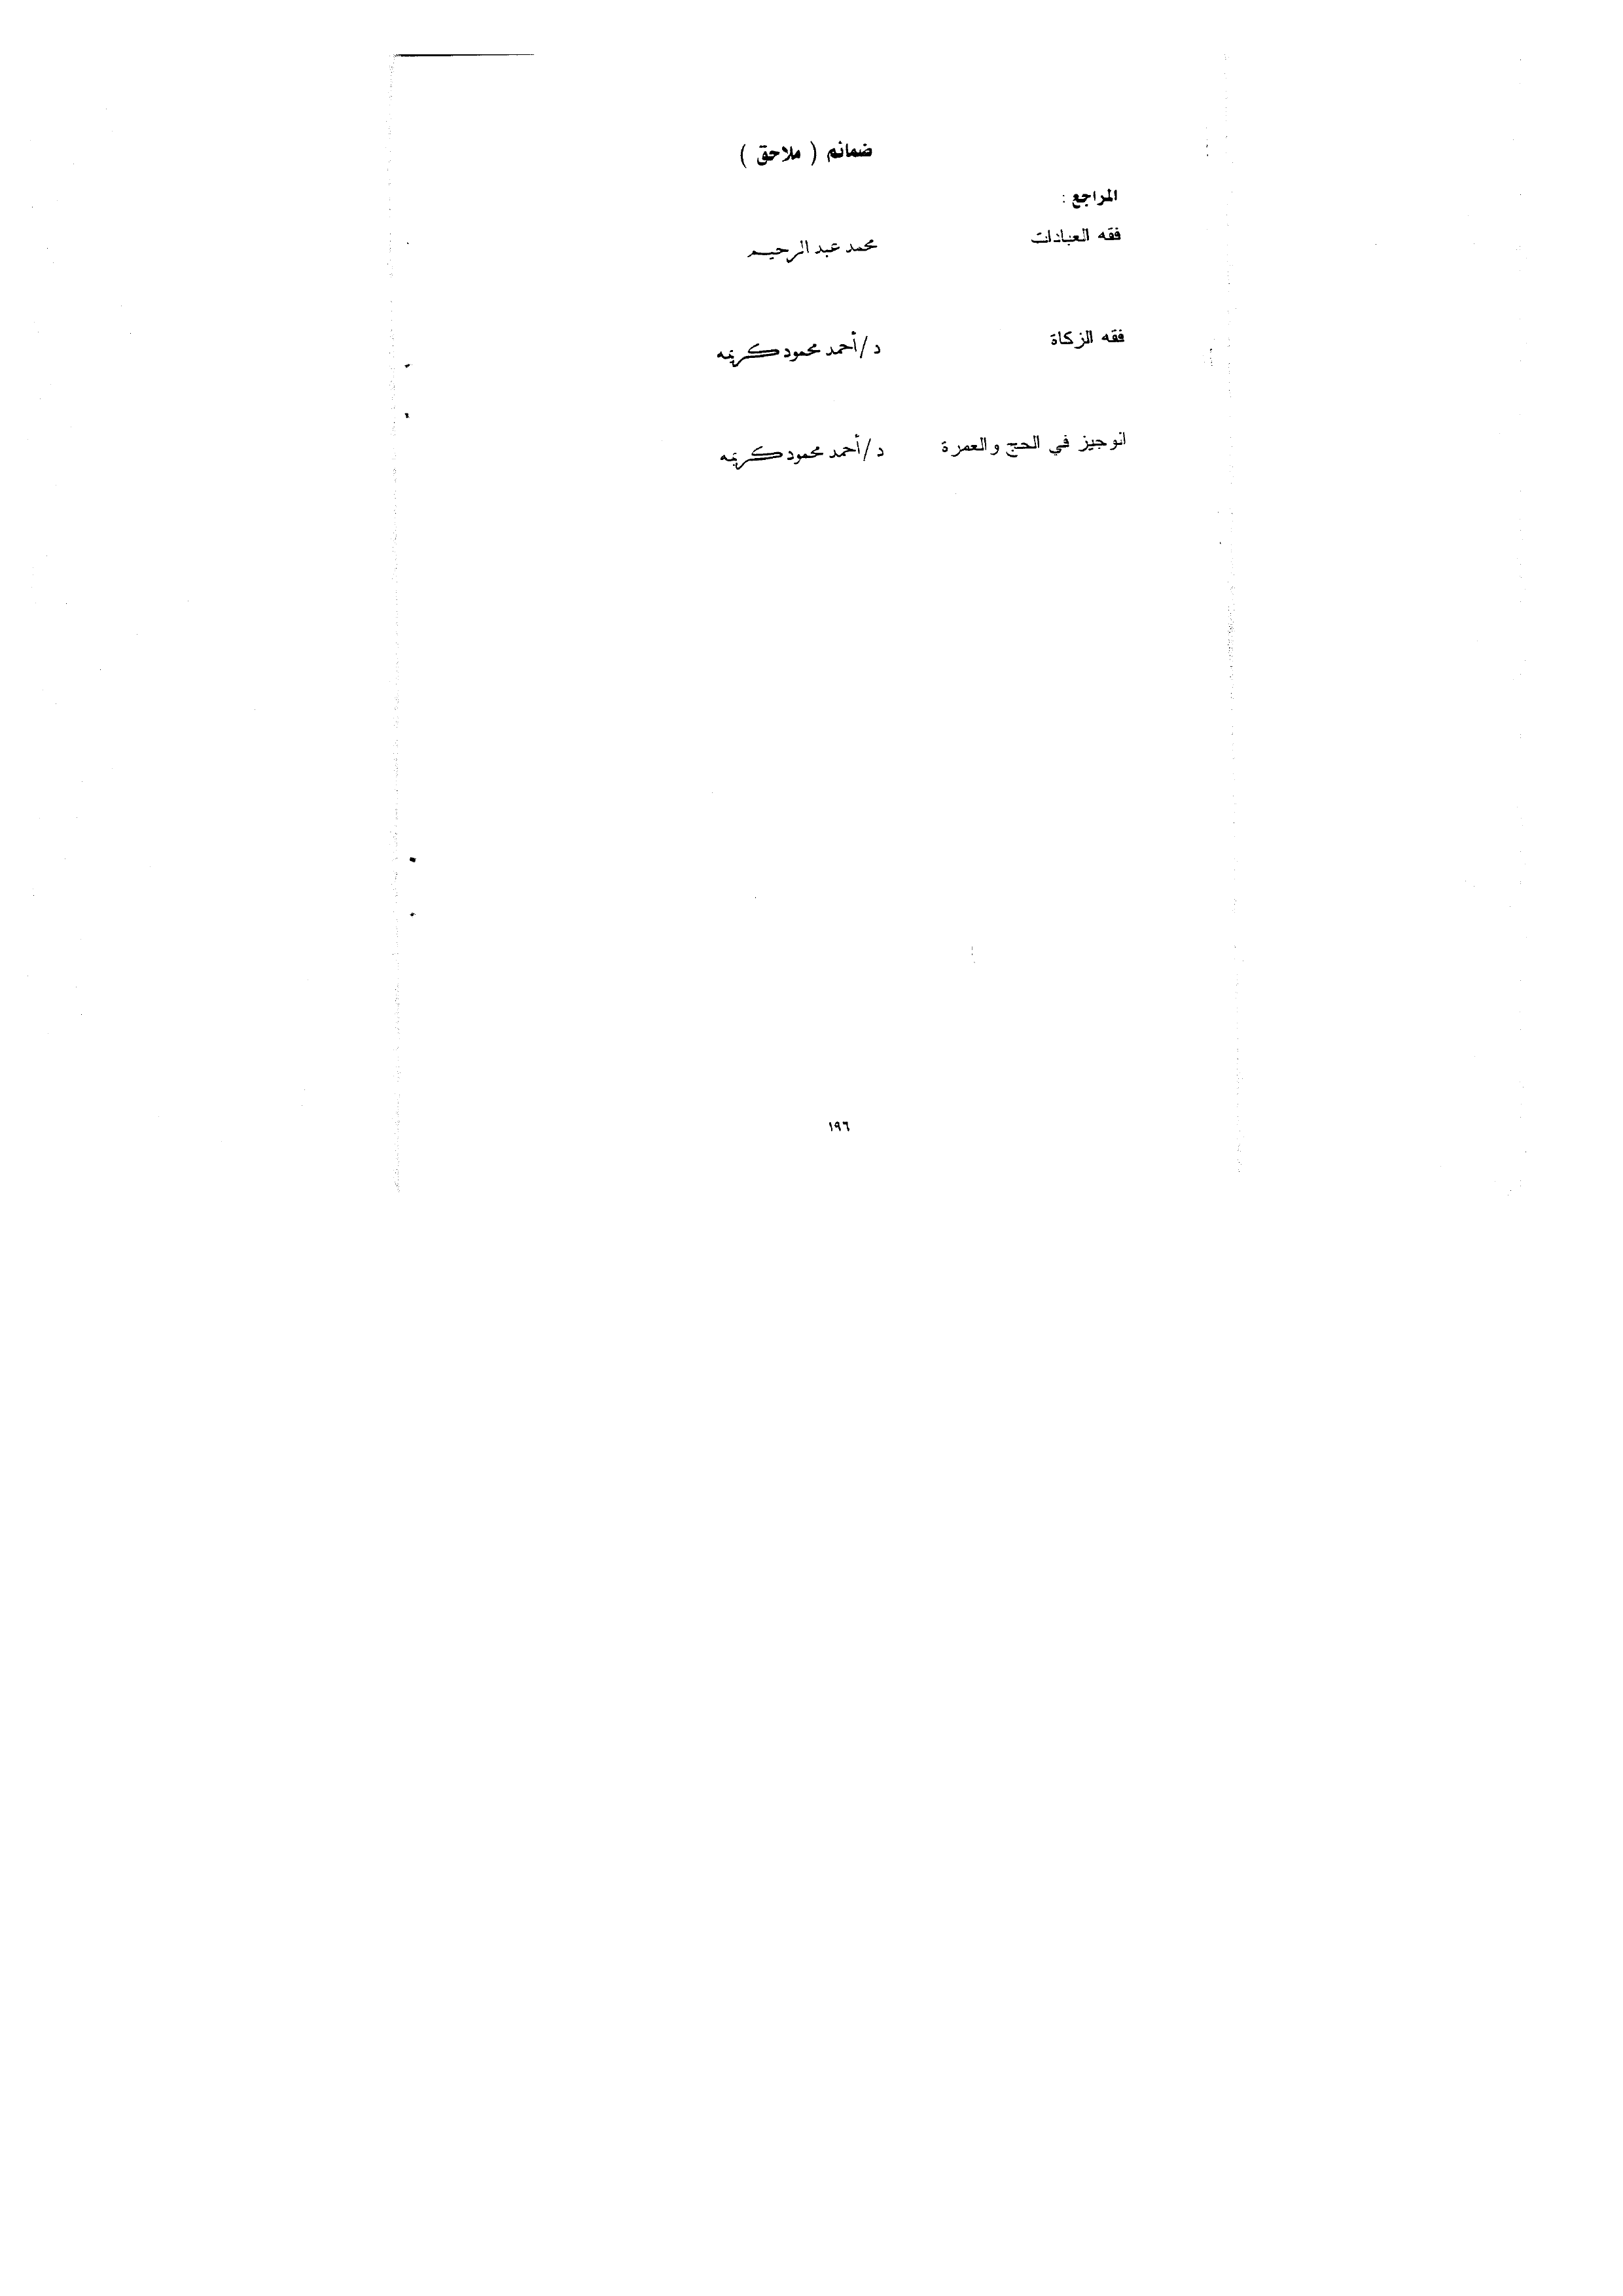 ضمائم ( ملاحق )
المراجع :
فقه العبادات محمد عبد الرحيم
فقه الزكاة د/أحمد محمود كريمه
الوجيز في الحج والعمرة د/أحمد محمود كريمه
١٩٦